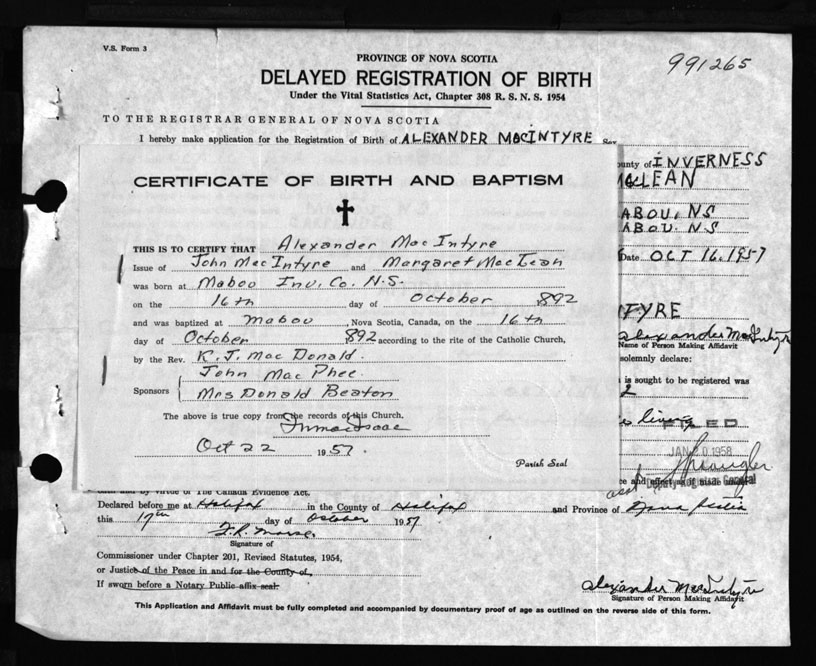 V.S. Form 3
991265
PROVINCE OF NOVA SCOTIA
DELAYED REGISTRATION OF BIRTH
Under the Vital Statistics Act, Chapter 308 R. S. N. S. 1954
TO THE REGISTRAR GENERAL OF NOVA SCOTIA
I hereby make application for the Registration of Birth of ALEXANDER MACINTYRE Sex
ounty of INVERNESS
McLEAN
ABOU, NS
ABOU. N.S
Date OCT 16.1957
TYRE
Alexander MacIntyre
Name of Person Making Affidavit
solemnly declare:
is sought to be registered was
2
is living
FILED
JAN 20 1958
Deputy Registrar General
CERTIFICATE OF BIRTH AND BAPTISM
THIS IS TO CERTIFY THAT Alexander MacIntyre
Issue of John MacIntyre and Margaret MacLean
was born at Mabou Inv. Co. N.S.
on the 16th day of October 1892
and was baptized at Mabou, Nova Scotia, Canada, on the 16th
day of October 1892 according to the rite of the Catholic Church,
by the Rev. K. J. MacDonald.
Sponsors John MacPhee.
Mrs Donald Beaton
The above is true copy from the records of this Church.
Oct 22 1957.
Parish Seal
and by virtue of The Canada Evidence Act.
Declared before me at Halifax in the County of Halifax and Province of Nova Scotia
this 17th day of October 1957
Signature of
Commissioner under Chapter 201, Revised Statutes, 1954,
or Justice of the Peace in and for the County of,
If sworn before a Notary Public affix seal.
Alexander MacIntyre
Signature of Person Making Affidavit
This Application and Affidavit must be fully completed and accompanied by documentary proof of age as outlined on the reverse side of this form.